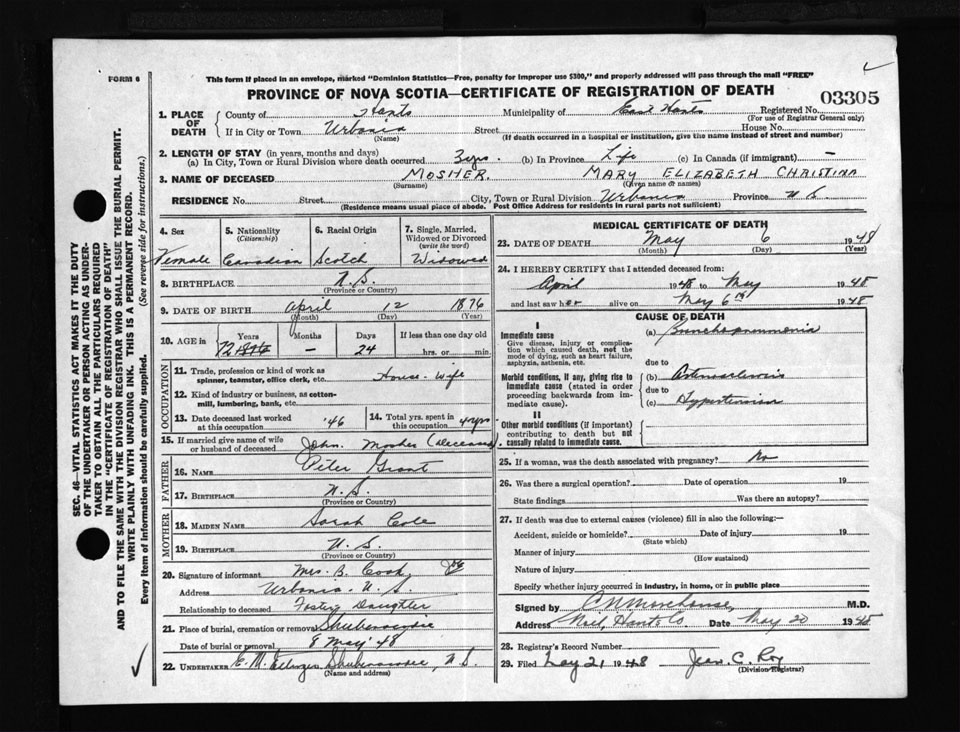 FORM 6
This form if placed in an envelope, marked "Dominion Statistics—Free, penalty for improper use $300," and properly addressed will pass through the mail "FREE"
PROVINCE OF NOVA SCOTIA—CERTIFICATE OF REGISTRATION OF DEATH
03305
1. PLACE OF DEATH County of Hants Municipality of East Hants Registered No.
(For use of Registrar General only)
If in City or Town Urbania Street House No.
(Name) (If death occurred in a hospital or institution, give the name instead of street and number)
2. LENGTH OF STAY (in years, months and days)
(a) In City, Town or Rural Division where death occurred 3 yrs. (b) In Province Life (c) In Canada (if immigrant) —
3. NAME OF DECEASED MOSHER. MARY ELIZABETH CHRISTINA
(Surname) (Given name or names)
RESIDENCE No. Street City, Town or Rural Division Urbania Province N.S.
(Residence means usual place of abode. Post Office Address for residents in rural parts not sufficient)
4. Sex 5. Nationality (Citizenship) 6. Racial Origin 7. Single, Married, Widowed or Divorced (write the word)
Female Canadian Scotch Widowed
8. BIRTHPLACE N.S.
(Province or Country)
9. DATE OF BIRTH April 12 1876
(Month) (Day) (Year)
10. AGE in Years Months Days If less than one day old
72 — 24 hrs. or min.
OCCUPATION
11. Trade, profession or kind of work as spinner, teamster, office clerk, etc. House-wife
12. Kind of industry or business, as cotton-mill, lumbering, bank, etc.
13. Date deceased last worked at this occupation '46 14. Total yrs. spent in this occupation
15. If married give name of wife or husband of deceased John Mosher (deceased)
FATHER
16. NAME Peter Grant
17. BIRTHPLACE N.S.
(Province or Country)
MOTHER
18. MAIDEN NAME Sarah Cole
19. BIRTHPLACE N.S.
(Province or Country)
20. Signature of informant Mrs. B. Cook
Address Urbania. N.S.
Relationship to deceased Foster Daughter
21. Place of burial, cremation or removal Shubenacadie
Date of burial or removal 8 May '48
22. UNDERTAKER E. M. Shubenacadie, N.S.
(Name and address)
MEDICAL CERTIFICATE OF DEATH
23. DATE OF DEATH May 6 1948
(Month) (Day)
24. I HEREBY CERTIFY that I attended deceased from:
April 1948 to May 1948
and last saw her alive on May 6th 1948
CAUSE OF DEATH
I
Immediate cause
Give disease, injury or complication which caused death, not the mode of dying, such as heart failure, asphyxia, asthenia, etc.
(a) Bronchopneumonia
due to
Morbid conditions, if any, giving rise to immediate cause (stated in order proceeding backwards from immediate cause).
(b) Arteriosclerosis
due to
(c) Hypertension
II
Other morbid conditions (if important) contributing to death but not causally related to immediate cause.
25. If a woman, was the death associated with pregnancy? No
26. Was there a surgical operation? Date of operation 19
State findings Was there an autopsy?
27. If death was due to external causes (violence) fill in also the following:—
Accident, suicide or homicide? Date of injury 19
(State which)
Manner of injury
(How sustained)
Nature of injury
Specify whether injury occurred in industry, in home, or in public place
Signed by C N Morehouse, M.D.
Address Noel, Hants Co Date May 20 1948
28. Registrar's Record Number
29. Filed May 21 1948 Jean C. Roy
(Division Registrar)
SEC. 46—VITAL STATISTICS ACT MAKES IT THE DUTY
OF THE UNDERTAKER OR PERSON ACTING AS UNDER-
TAKER TO OBTAIN ALL THE PARTICULARS REQUIRED
IN THE "CERTIFICATE OF REGISTRATION OF DEATH"
AND TO FILE THE SAME WITH THE DIVISION REGISTRAR WHO SHALL ISSUE THE BURIAL PERMIT.
WRITE PLAINLY WITH UNFADING INK. THIS IS A PERMANENT RECORD.
Every item of information should be carefully supplied. (See reverse side for instructions.)